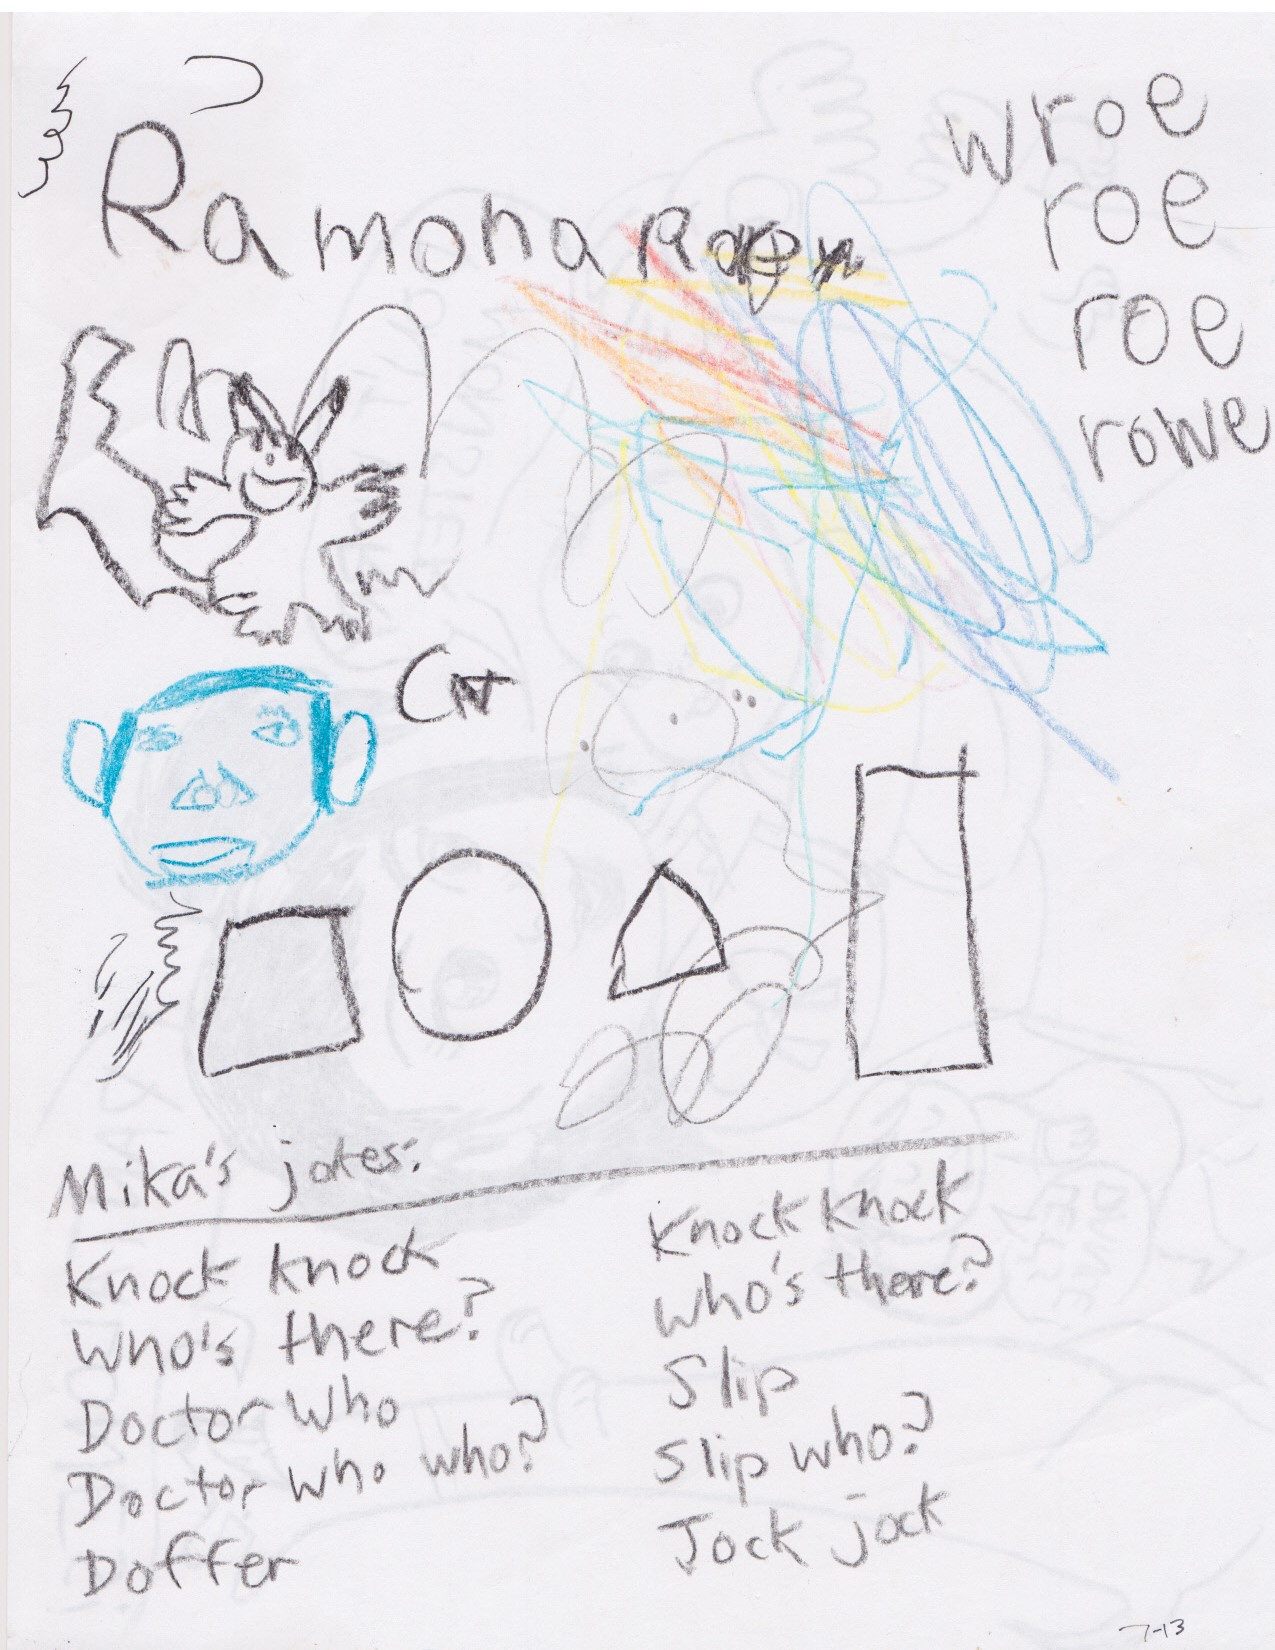 Ramona
wroe
roe
roe
rowe
Mika's jokes:
Knock knock
Who's there?
Doctor Who
Doctor who who?
Doffer
Knock knock
Who's there?
Slip
Slip who?
Jock jock
7-13